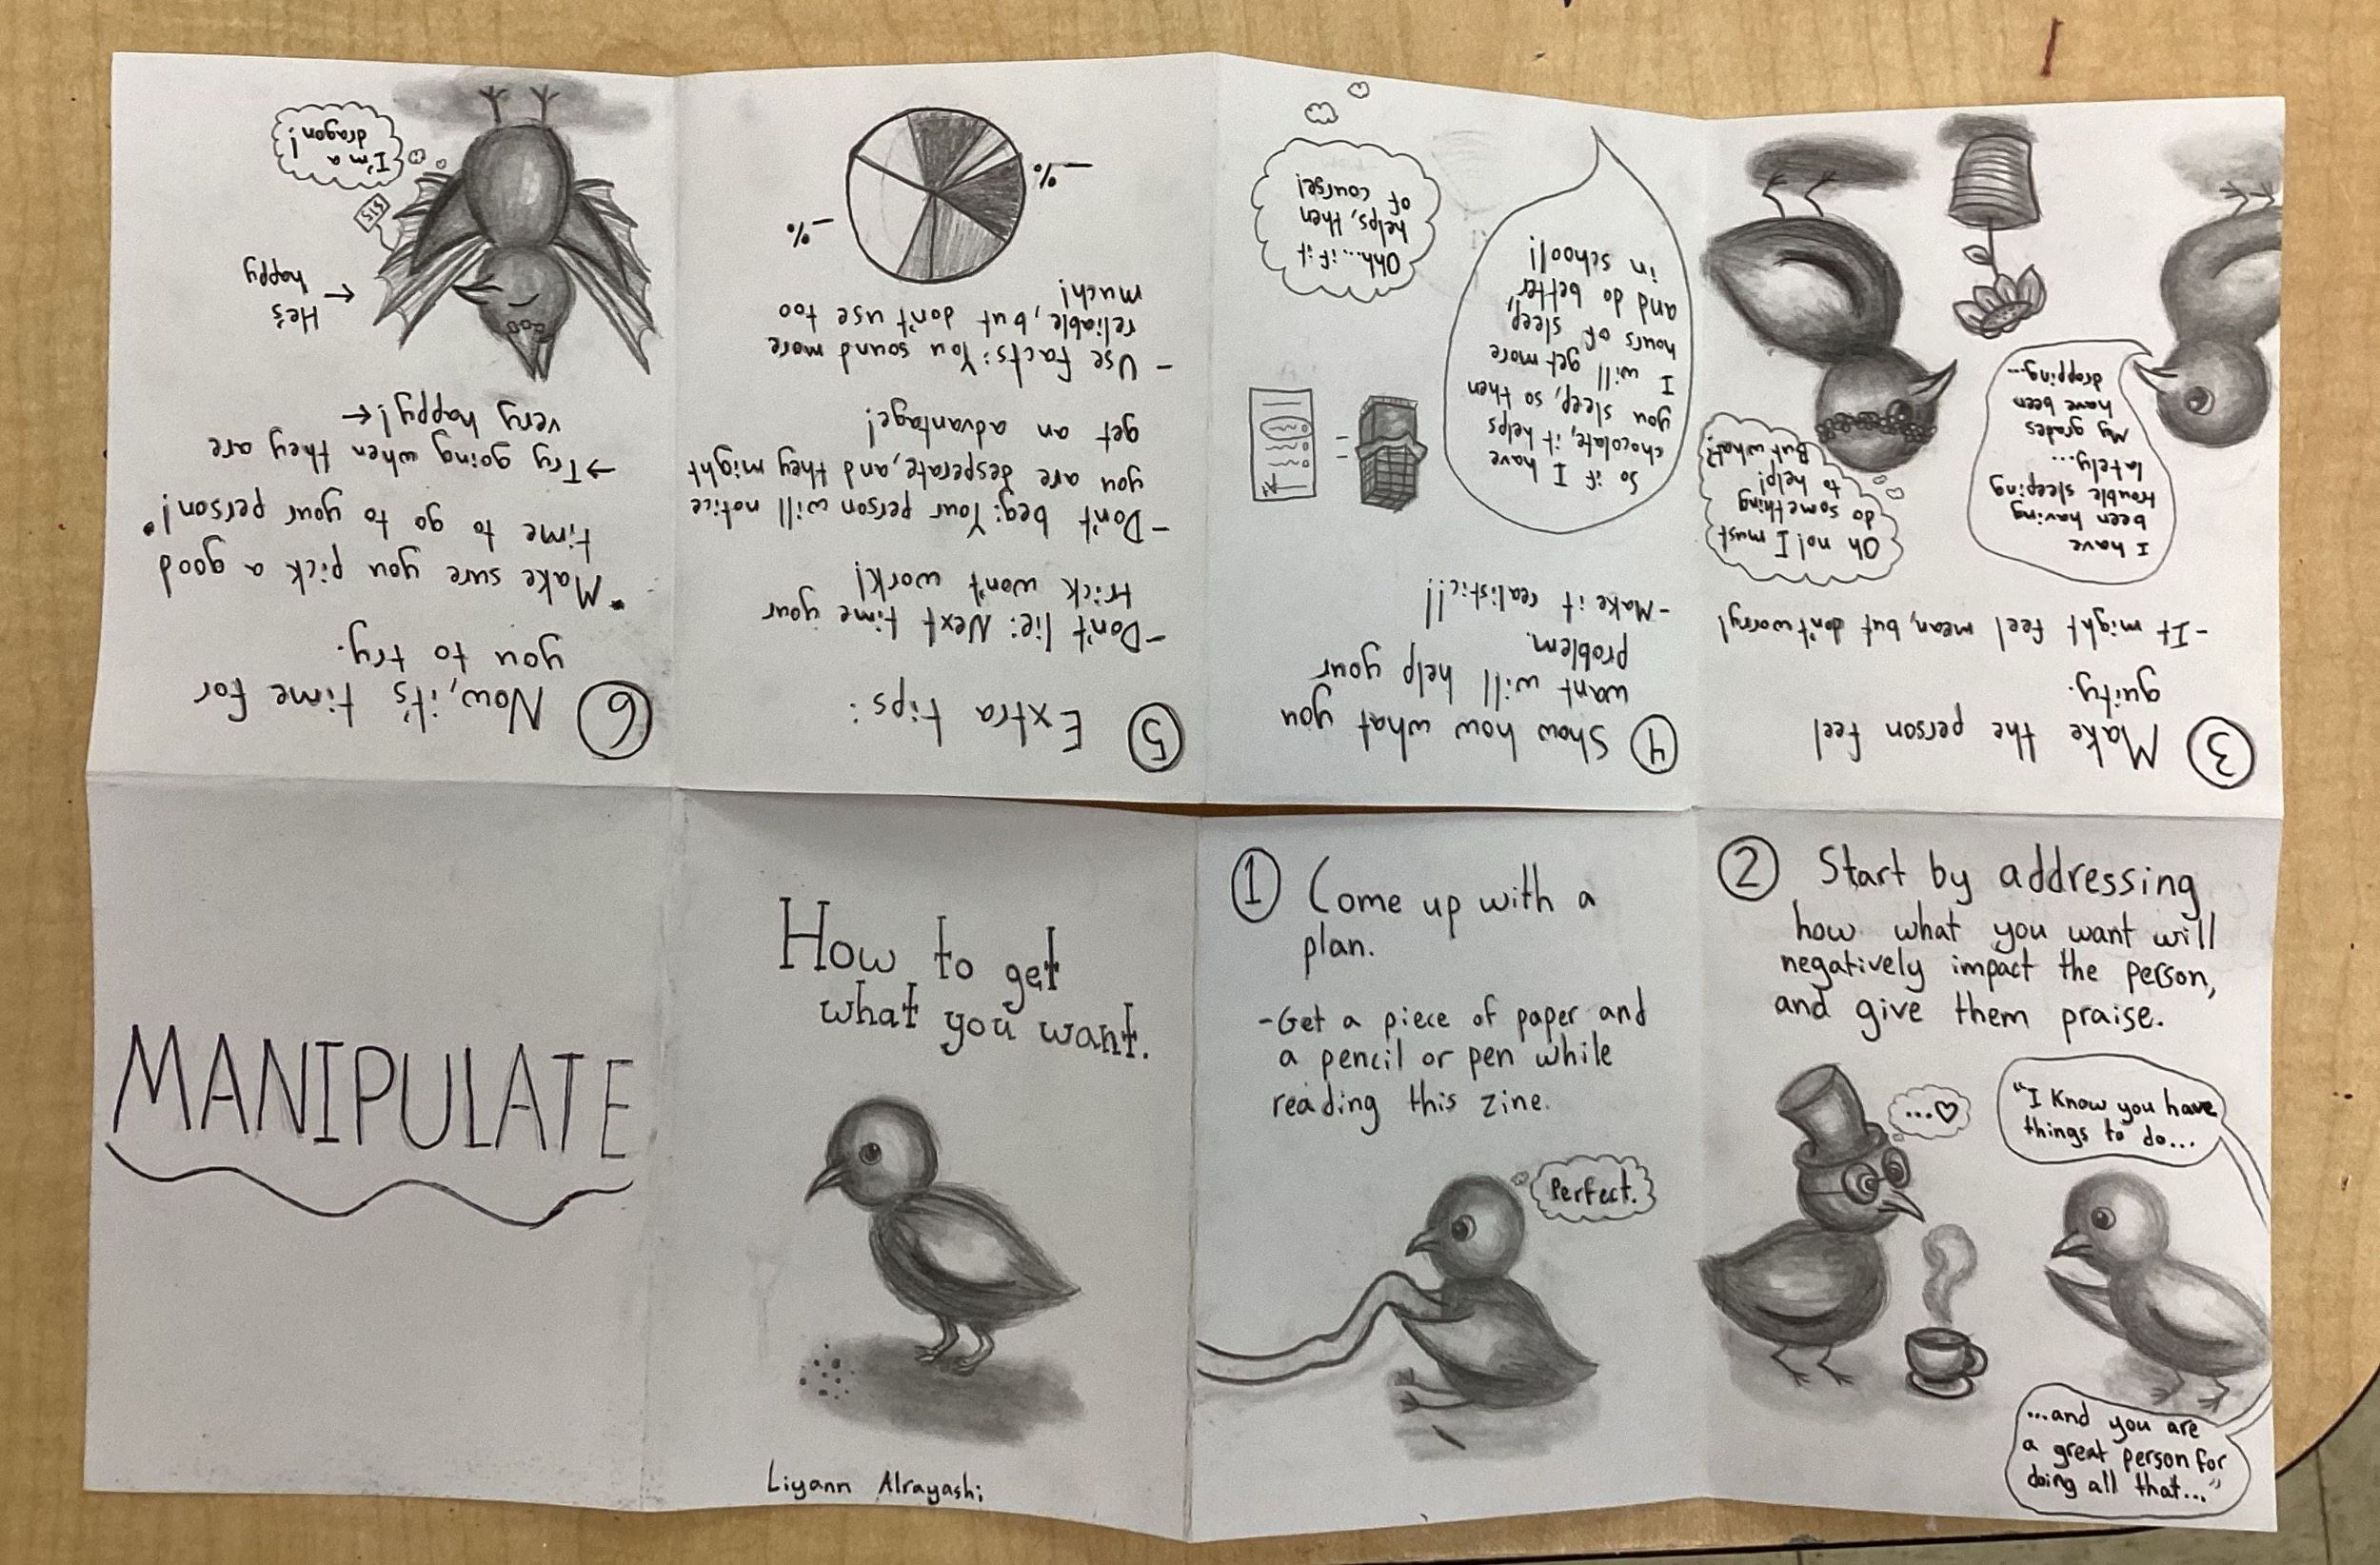 How to get
what you want.
Liyann Alrayashi
1 Come up with a
plan.
-Get a piece of paper and
a pencil or pen while
reading this zine.
Perfect.
2 Start by addressing
how what you want will
negatively impact the person,
and give them praise.
...♡
"I know you have
things to do...
...and you are
a great person for
doing all that..."
3 Make the person feel
guilty.
-It might feel mean, but don't worry!
I have
been having
trouble sleeping
lately...
My grades
have been
dropping...
Oh no! I must
do something
to help!
But what?
4 Show how what you
want will help your
problem.
-Make it realistic!!
So if I have
chocolate, it helps
you sleep, so then
I will get more
hours of sleep,
and do better
in school!
=
A+
Ohh...if it
helps, then
of course!
5 Extra tips:
-Don't lie: Next time your
trick won't work!
-Don't beg: Your person will notice
you are desperate, and they might
get an advantage!
-Use facts: You sound more
reliable, but don't use too
much!
-%
-%
6 Now, it's time for
you to try.
*Make sure you pick a good
time to go to your person!*
→Try going when they are
very happy!←
He's
happy
$15
I'm a
dragon!
MANIPULATE